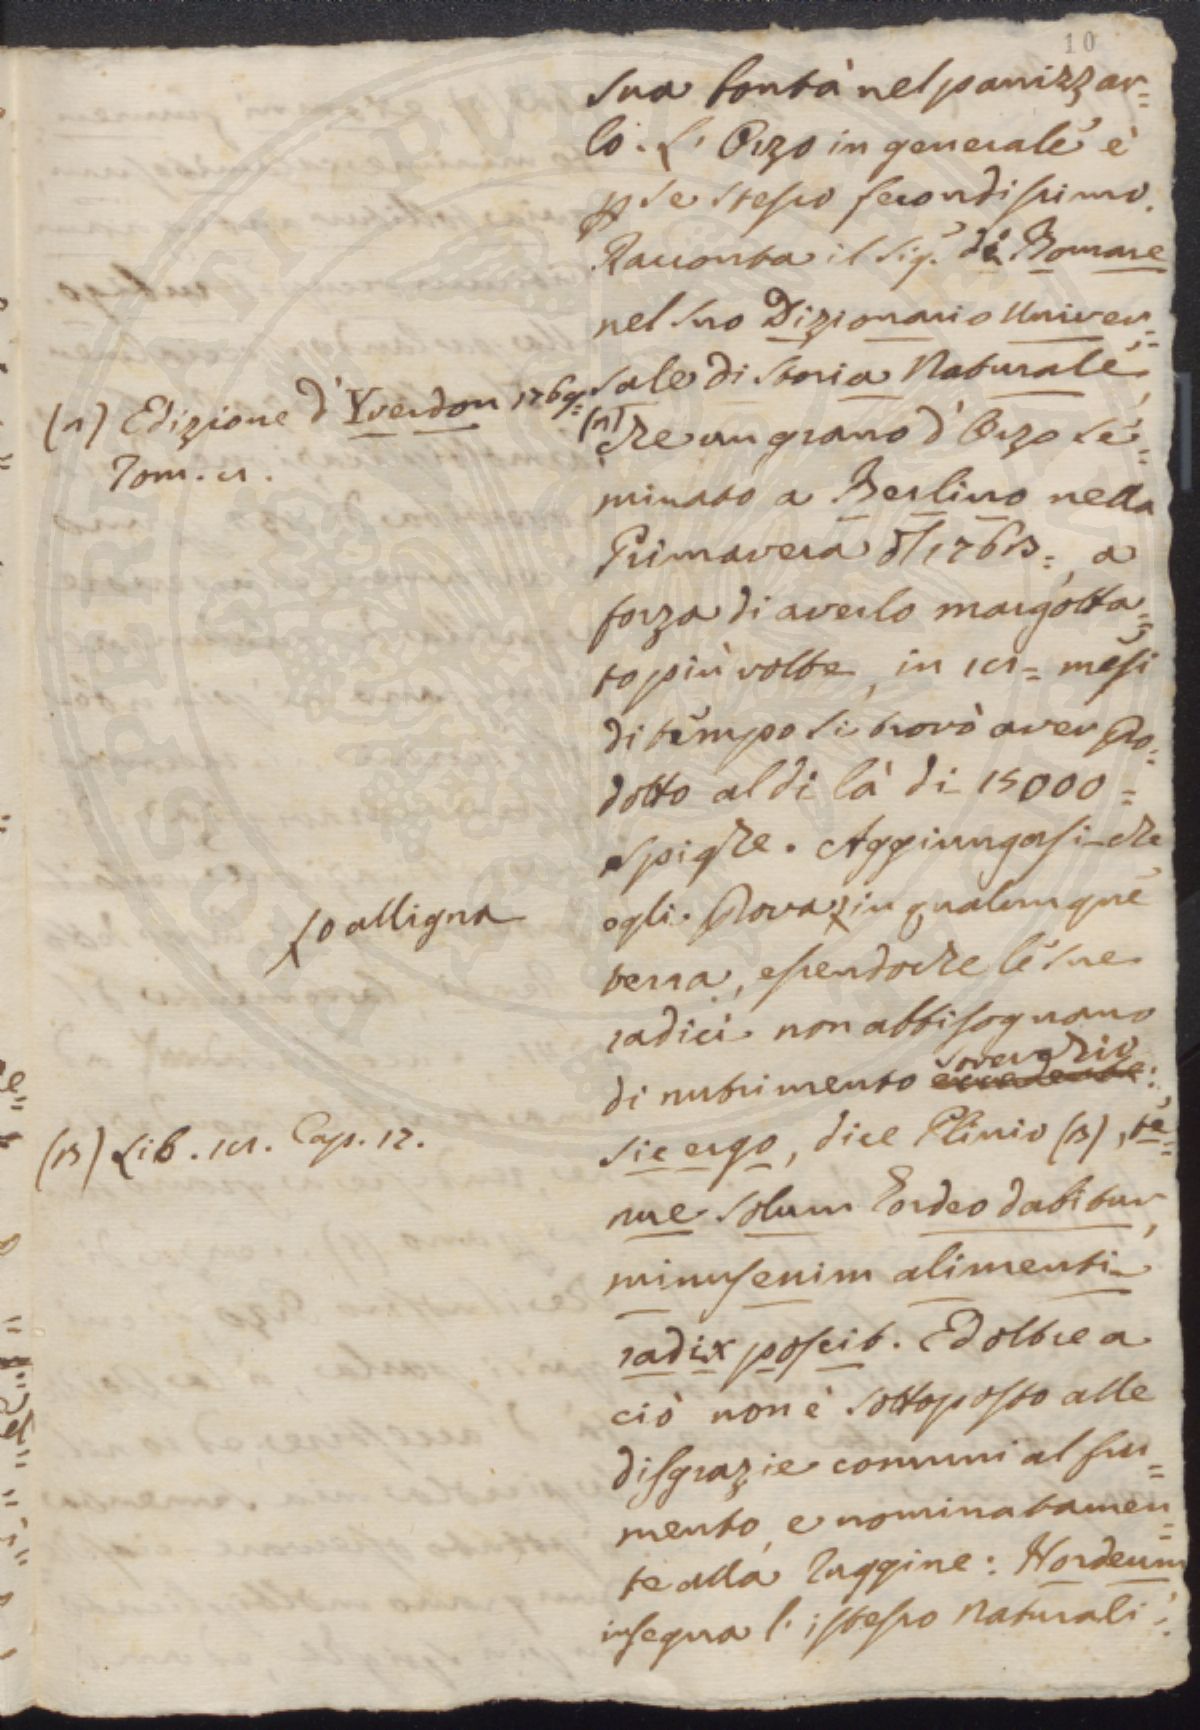 10
sua bontà nel panizzar=
lo. L'Orzo in generale è
p se stesso fecondissimo.
Racconta il Sig.r di Bomare
nel suo Dizionario Univer=
sale di Storia Naturale,
(A) che un grano d'Orzo se=
minato a Berlino nella
Primavera
forza di averlo margotta=
to più volte, in mesi
di tempo si trovò aver pro=
dotto al di là di 15000=
spighe. Aggiungasi che
egli prova in qualunque
terra, essendoche le sue
radici non abbisognano
soverchio
di nutrimento eccedente:
sic ergo, dice Plinio (B), te=
nue solum hordeo dabitur,
minus enim alimenti
radix poscit. Ed oltre a
ciò non è sottoposto alle
disgrazie comuni al fru=
mento, e nominatamen=
te alla ruggine: Hordeum
insegna l'istesso Naturali=
(A) Edizione d'Yverdon 1769=
Tom.
alligna
(B) Lib. Cap. 17.